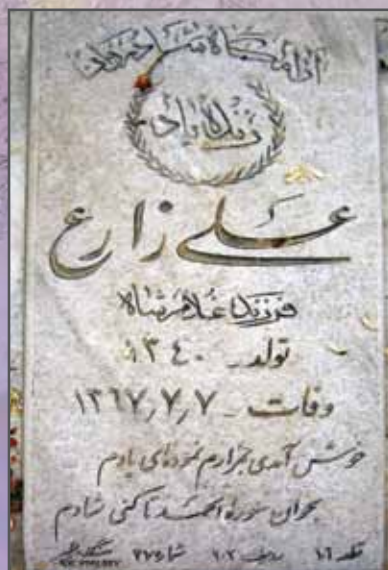 آرامگاه شاد
زنده یاد
علی زارع
فرزند غلامشاه
تولد - ۱۳۴۰
وفات - ۱۳۶۷٫۷٫۷
خوش آمدی بمزارم نموده‌ای یادم
بخوان سوره الحمد تا کنی شادم
قطعه ۱۶ ردیف ۱۰۲ شماره ۲۷